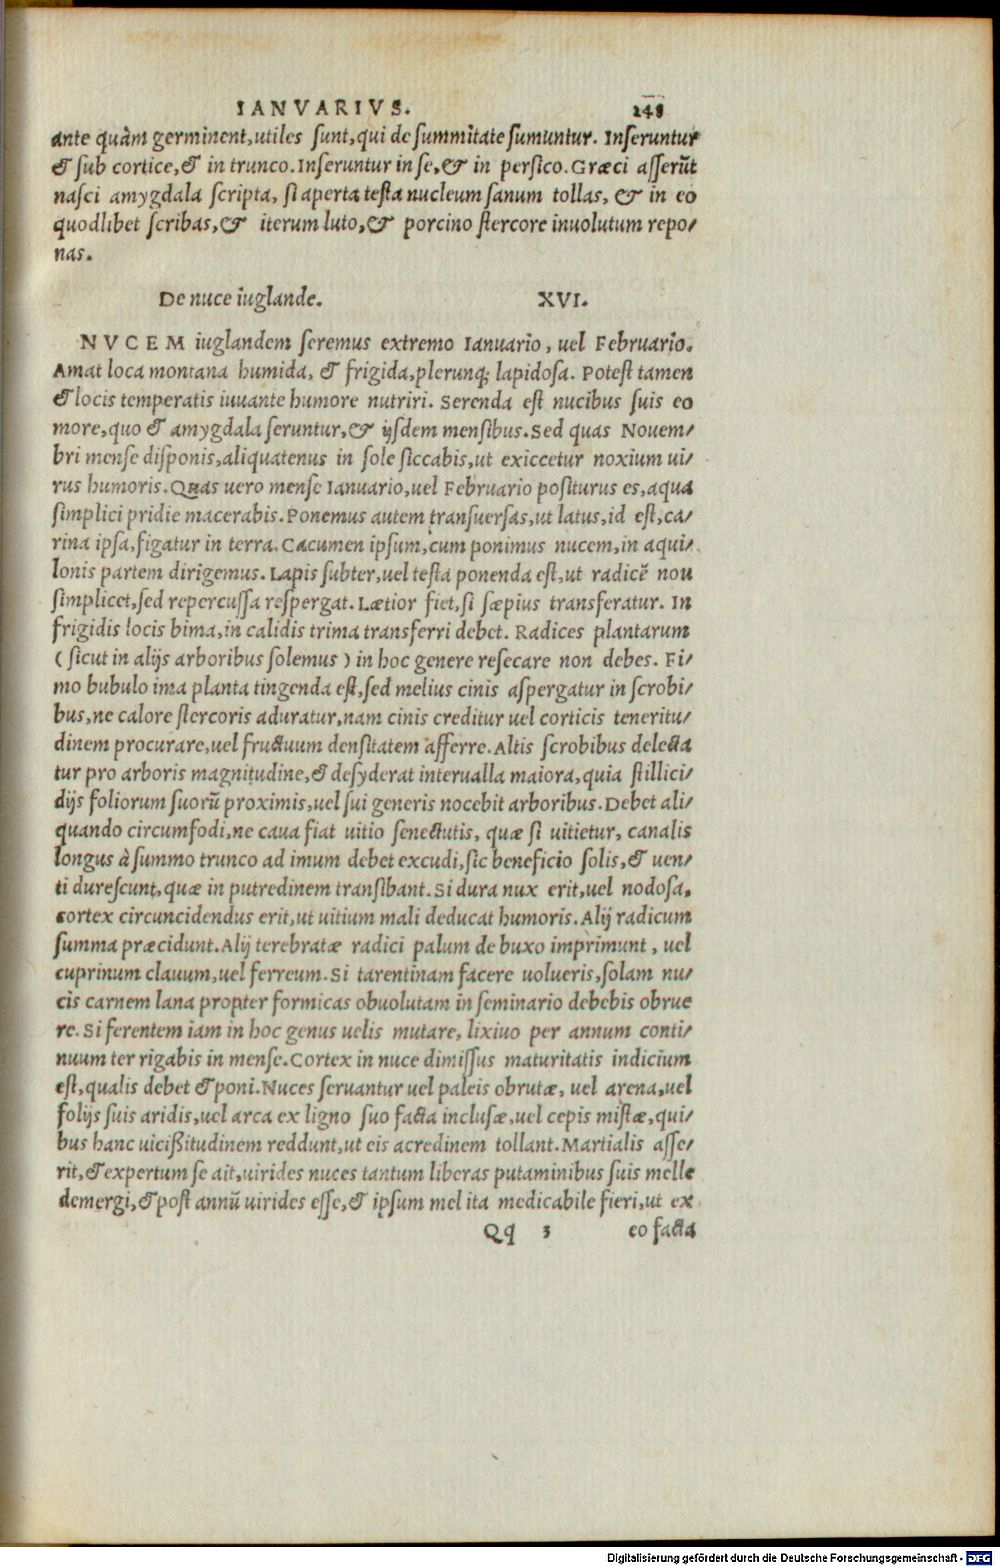 IANVARIVS. 248
ante quàm germinent,utiles sunt,qui de summitate sumuntur. Inseruntur
& sub cortice,& in trunco.Inseruntur in se,& in persico.Græci asserūt
nasci amygdala scripta, si aperta testa nucleum sanum tollas, & in eo
quodlibet scribas,& iterum luto,& porcino stercore inuolutum repo/
nas.
De nuce iuglande. XVI.
NVCEM iuglandem seremus extremo Ianuario, uel Februario.
Amat loca montana humida, & frigida,plerunq; lapidosa. Potest tamen
& locis temperatis iuuante humore nutriri. Serenda est nucibus suis eo
more,quo & amygdala seruntur,& ijsdem mensibus.Sed quas Nouem/
bri mense disponis,aliquatenus in sole siccabis,ut exiccetur noxium ui/
rus humoris.Quas uero mense Ianuario,uel Februario positurus es,aqua
simplici pridie macerabis.Ponemus autem transuersas,ut latus,id est,ca/
rina ipsa,figatur in terra.Cacumen ipsum,cum ponimus nucem,in aqui/
lonis partem dirigemus.Lapis subter,uel testa ponenda est,ut radicē non
simplicet,sed repercussa respergat.Lætior fiet,si sæpius transferatur. In
frigidis locis bima,in calidis trima transferri debet. Radices plantarum
( sicut in alijs arboribus solemus ) in hoc genere resecare non debes. Fi/
mo bubulo ima planta tingenda est,sed melius cinis aspergatur in scrobi/
bus,ne calore stercoris aduratur,nam cinis creditur uel corticis teneritu/
dinem procurare,uel fructuum densitatem afferre.Altis scrobibus delecta
tur pro arboris magnitudine,& desyderat interualla maiora,quia stillici/
dijs foliorum suorū proximis,uel sui generis nocebit arboribus.Debet ali/
quando circumfodi,ne caua fiat uitio senectutis, quæ si uitietur, canalis
longus à summo trunco ad imum debet excudi,sic beneficio solis,& uen/
ti durescunt,quæ in putredinem transibant.Si dura nux erit,uel nodosa,
cortex circuncidendus erit,ut uitium mali deducat humoris.Alij radicum
summa præcidunt.Alij terebratæ radici palum de buxo imprimunt, uel
cuprinum clauum,uel ferreum.Si tarentinam facere uolueris,solam nu/
cis carnem lana propter formicas obuolutam in seminario debebis obrue
re.Si ferentem iam in hoc genus uelis mutare, lixiuo per annum conti/
nuum ter rigabis in mense.Cortex in nuce dimissus maturitatis indicium
est,qualis debet & poni.Nuces seruantur uel paleis obrutæ, uel arena,uel
folijs suis aridis,uel arca ex ligno suo facta inclusæ,uel cepis mistæ,qui/
bus hanc uicißitudinem reddunt,ut eis acredinem tollant.Martialis asse/
rit,& expertum se ait,uirides nuces tantum liberas putaminibus suis melle
demergi,& post annū uirides esse,& ipsum mel ita medicabile fieri,ut ex
Qq 3 eo facta
Digitalisierung gefördert durch die Deutsche Forschungsgemeinschaft - DFG